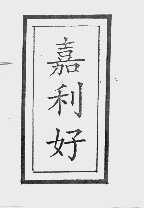 嘉利好